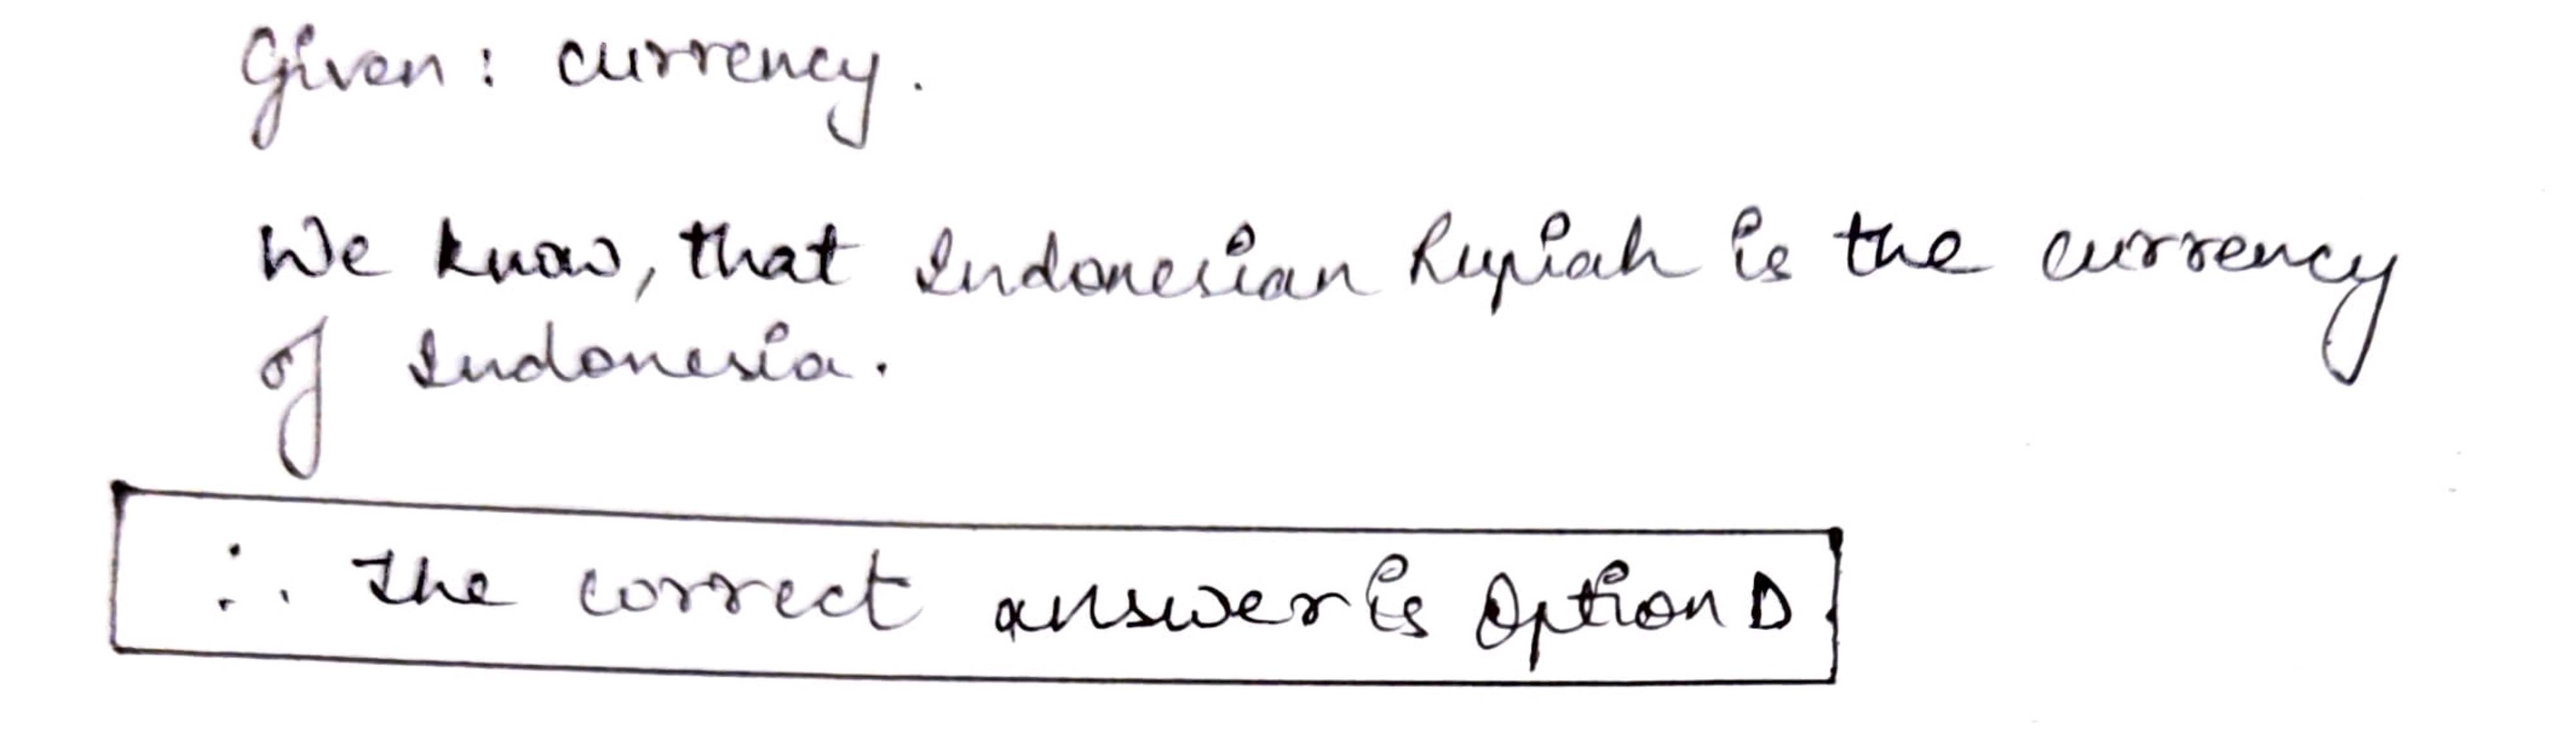 Given: currency.
We know, that Indonesian Rupiah is the currency
of Indonesia.
∴ The correct answer is Option D